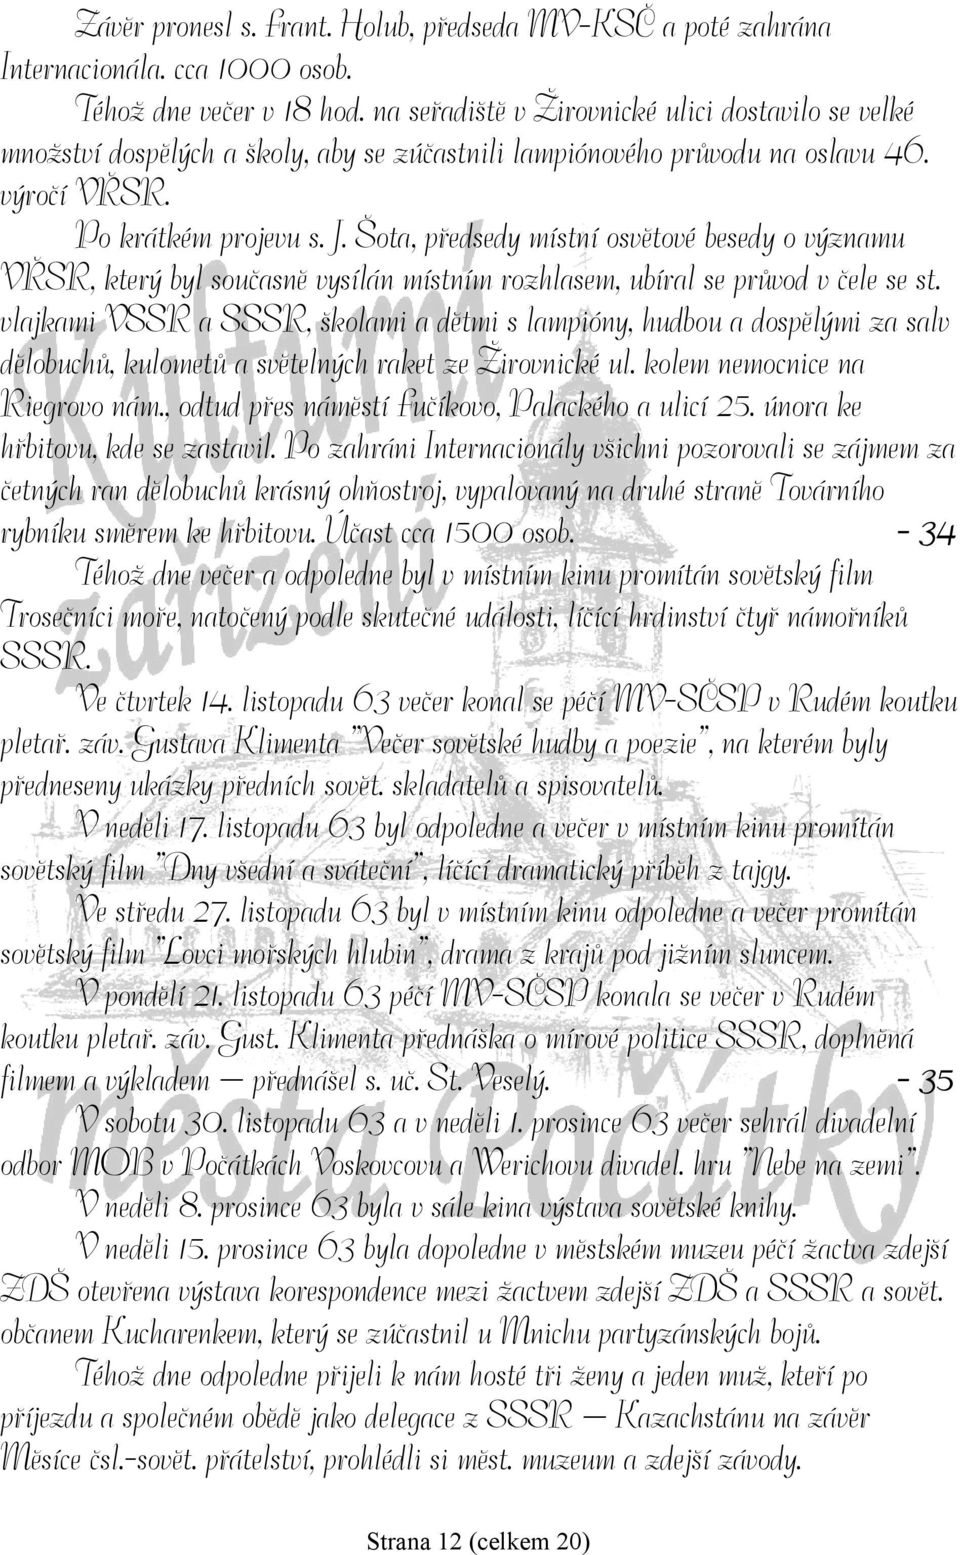 Závěr pronesl s. Frant. Holub, předseda MV-KSČ a poté zahrána
Internacionála. cca 1000 osob.
Téhož dne večer v 18 hod. na seřadiště v Žirovnické ulici dostavilo se velké
množství dospělých a školy, aby se zúčastnili lampiónového průvodu na oslavu 46.
výročí VŘSR.
Po krátkém projevu s. J. Šota, předsedy místní osvětové besedy o významu
VŘSR, který byl současně vysílán místním rozhlasem, ubíral se průvod v čele se st.
vlajkami VSSR a SSSR, školami a dětmi s lampióny, hudbou a dospělými za salv
dělobuchů, kulometů a světelných raket ze Žirovnické ul. kolem nemocnice na
Riegrovo nám., odtud přes náměstí Fučíkovo, Palackého a ulicí 25. února ke
hřbitovu, kde se zastavil. Po zahráni Internacionály všichni pozorovali se zájmem za
četných ran dělobuchů krásný ohňostroj, vypalovaný na druhé straně Továrního
rybníku směrem ke hřbitovu. Účast cca 1500 osob. - 34
Téhož dne večer a odpoledne byl v místním kinu promítán sovětský film
Trosečníci moře, natočený podle skutečné události, líčící hrdinství čtyř námořníků
SSSR.
Ve čtvrtek 14. listopadu 63 večer konal se péčí MV-SČSP v Rudém koutku
pletař. záv. Gustava Klimenta "Večer sovětské hudby a poezie", na kterém byly
předneseny ukázky předních sovět. skladatelů a spisovatelů.
V neděli 17. listopadu 63 byl odpoledne a večer v místním kinu promítán
sovětský film "Dny všední a sváteční", líčící dramatický příběh z tajgy.
Ve středu 27. listopadu 63 byl v místním kinu odpoledne a večer promítán
sovětský film "Lovci mořských hlubin", drama z krajů pod jižním sluncem.
V pondělí 21. listopadu 63 péčí MV-SČSP konala se večer v Rudém
koutku pletař. záv. Gust. Klimenta přednáška o mírové politice SSSR, doplněná
filmem a výkladem – přednášel s. uč. St. Veselý. - 35
V sobotu 30. listopadu 63 a v neděli 1. prosince 63 večer sehrál divadelní
odbor MOB v Počátkách Voskovcovu a Werichovu divadel. hru "Nebe na zemi".
V neděli 8. prosince 63 byla v sále kina výstava sovětské knihy.
V neděli 15. prosince 63 byla dopoledne v městském muzeu péčí žactva zdejší
ZDŠ otevřena výstava korespondence mezi žactvem zdejší ZDŠ a SSSR a sovět.
občanem Kucharenkem, který se zúčastnil u Mnichu partyzánských bojů.
Téhož dne odpoledne přijeli k nám hosté tři ženy a jeden muž, kteří po
příjezdu a společném obědě jako delegace z SSSR – Kazachstánu na závěr
Měsíce čsl.-sovět. přátelství, prohlédli si měst. muzeum a zdejší závody.
Kulturní
zařízení
města Počátky
Strana 12 (celkem 20)